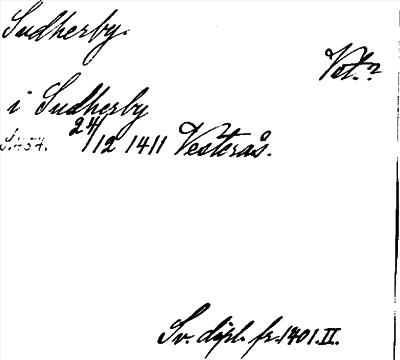 Sudherby.
Vet.?
i Sudherby
S. 454. 24/12 1411 Vesterås.
Sv. dipl. fr. 1401. II.